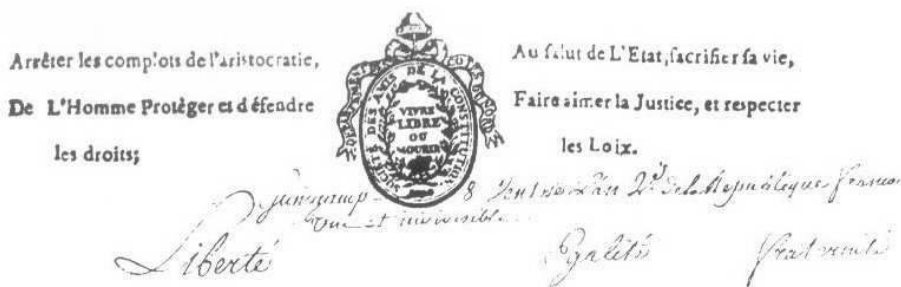 Arrêter les complots de l'aristocratie,
De L'Homme Protèger et défendre
les droits;
DEPARTEMENT DES COTES DU NORD
SOCIETE DES AMIS DE LA CONSTITUTION
VIVRE
LIBRE
OU
MOURIR
Au salut de L'Etat, sacrifier sa vie,
Faire aimer la Justice, et respecter
les Loix.
Guingamp 8 Ventose l'an 2d de la Republique
une et indivisible
Liberté Egalité fraternité